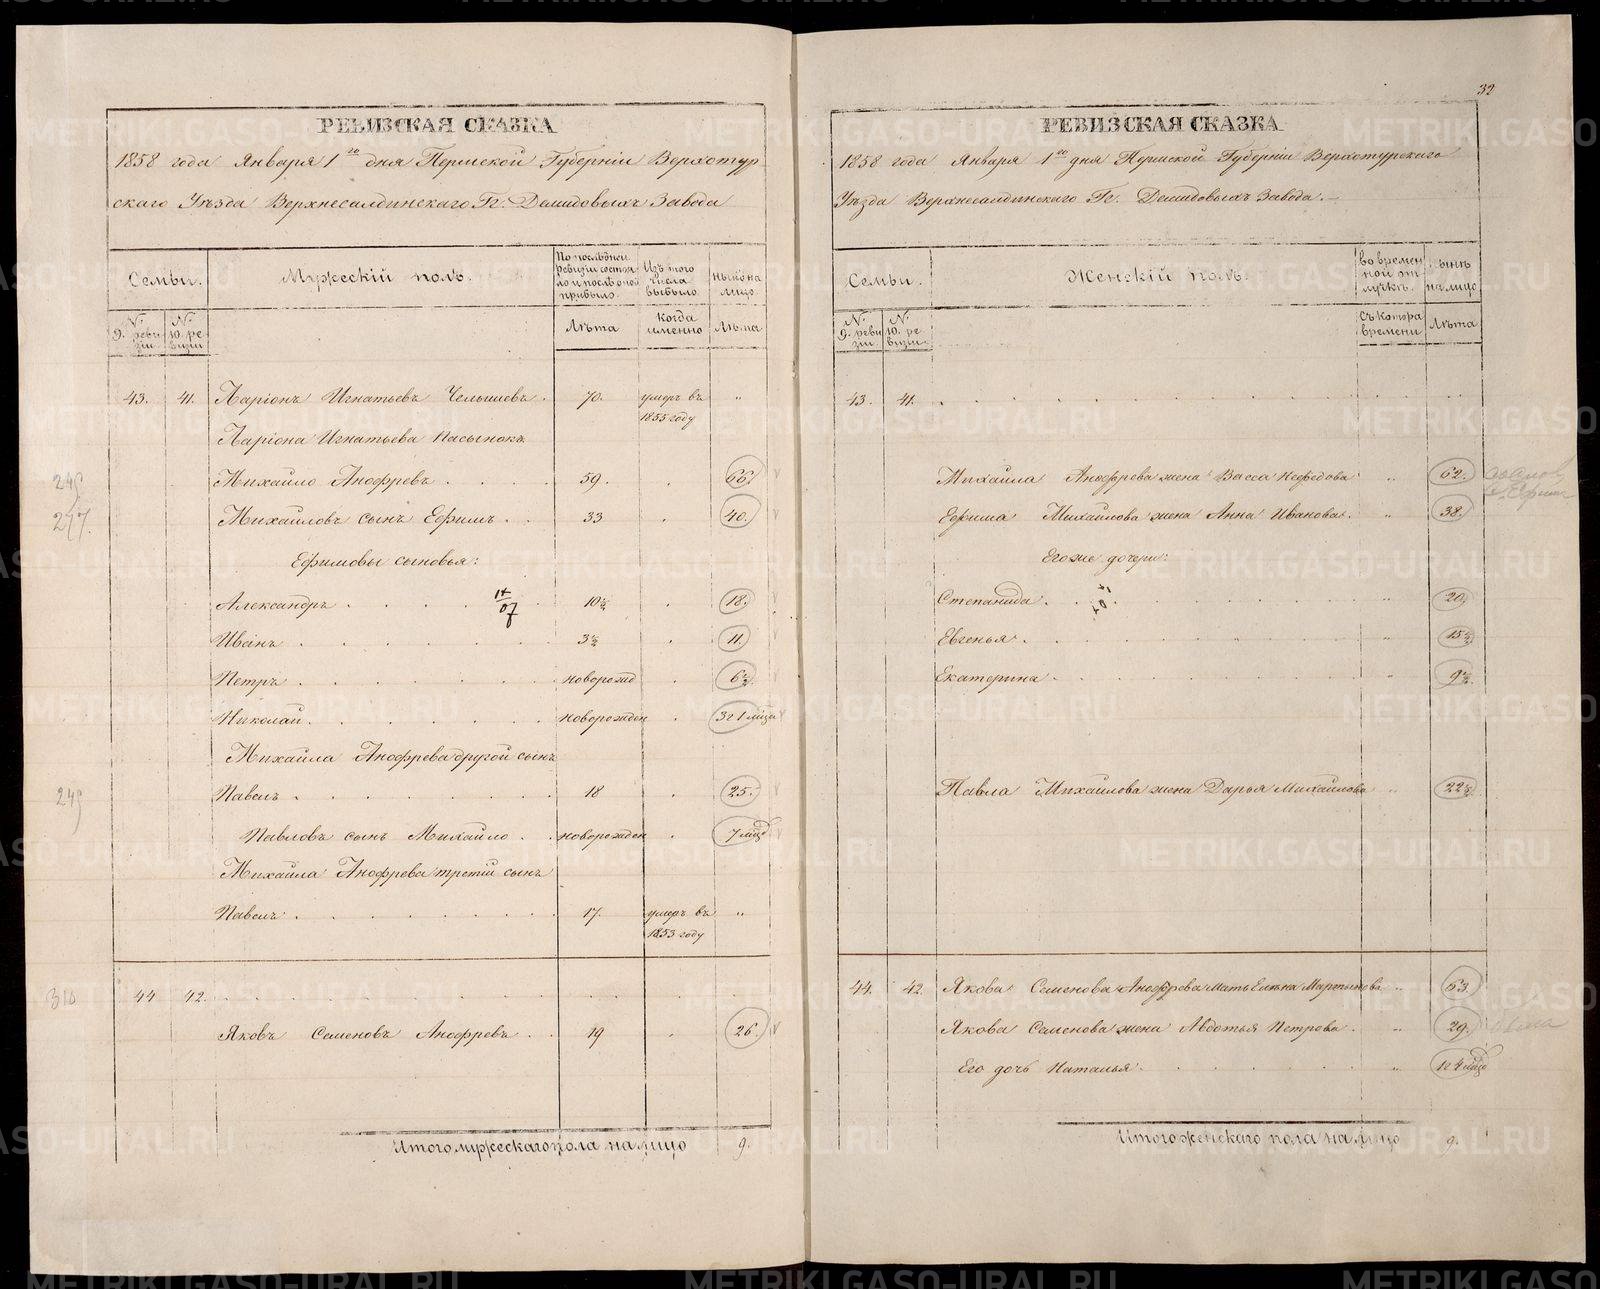 32
РЕВИЗСКАЯ СКАЗКА
1858 года Января 1го дня Пермской Губернiи Верхотур
скаго Уѣзда Верхнесалдинскаго Гг. Демидовыхъ Завода
Семьи.
Мужескiй полъ.
По послѣдней ревизiи состояло и послѣ оной прибыло.
Изъ того числа выбыло.
Нынѣ на лицо.
№ 9. ревизiи
№ 10. ревизiи
Лѣта
Когда именно
Лѣта
43. 41. Ларiонъ Игнатьевъ Челышевъ. 70. умеръ въ 1855 году "
Ларiона Игнатьева пасынокъ
Михайло Анофревъ . . . . 59. . 66.
247. Михайловъ сынъ Ефимъ . . 33 . 40.
Ефимовы сыновья:
Александръ . . . . 17/07 10½ . 18.
Иванъ . . . . . . . 3½ . 11
Петръ . . . . . . . новорожд . 6½.
Николай . . . . . . . новорожден . 3г 1 мѣсц
Михайла Анофрева другой сынъ
249 Павелъ . . . . . . . 18 . 25.
Павловъ сынъ Михайло . . новорожден . 7 мѣсц
Михайла Анофрева третiй сынъ
Павелъ . . . . . . . 17. умеръ въ 1853 году "
310 44 42. . . . . . . . . .
Яковъ Семеновъ Анофревъ . . 19 . 26.
Итого мужескаго пола на лицо 9.
РЕВИЗСКАЯ СКАЗКА
1858 года Января 1го дня Пермской Губернiи Верхотурскаго
Уѣзда Верхнесалдинскаго Гг. Демидовыхъ Завода.
Семьи.
Женскiй полъ.
во временной отлучкѣ.
Нынѣ на лицо
№ 9. ревизiи
№ 10. ревизiи
Съ котора времени
Лѣта
43. 41. . . . . . . . . . .
Михайла Анофрева жена Васса Нефедова " 62.
Ефима Михайлова жена Анна Иванова. " 38.
Его же дочери:
Степанида . . 17/07 . . . . " 20
Евгенья . . . . . . . " 15½
Екатерина . . . . . . . " 9½.
Павла Михайлова жена Дарья Михайлова " 22½
44. 42. Якова Семенова Анофрева мать Елена Мартынова " 63
Якова Семенова жена Авдотья Петрова . " 29.
Его дочь Наталья . . . . . " 1г 4 мѣсц
Итого женскаго пола на лицо 9.
METRIKI.GASO-URAL.RU